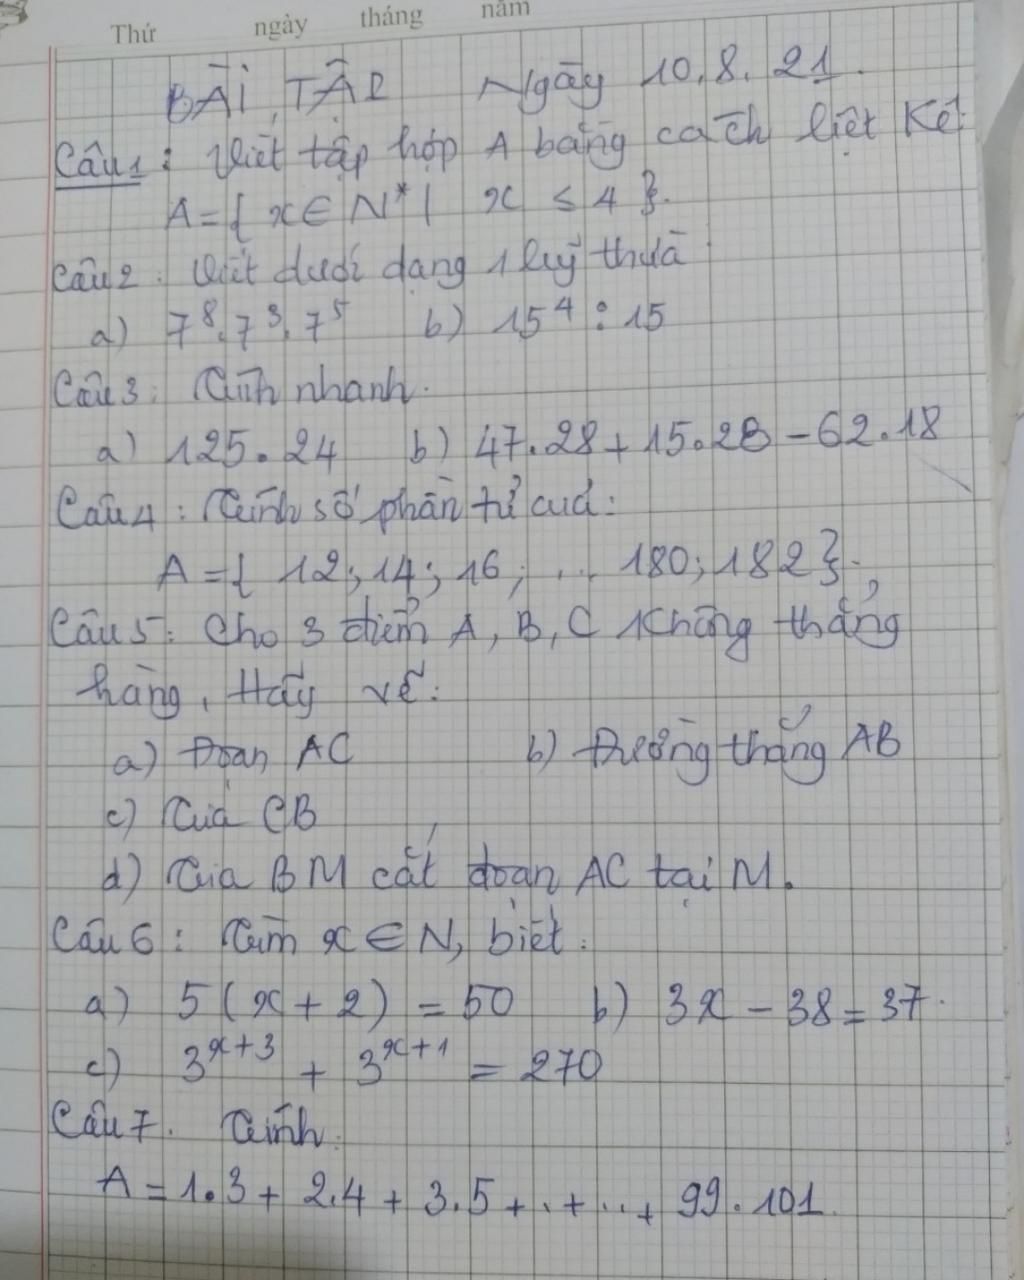 Thứ ngày tháng năm
BÀI TẬP Ngày 10.8.21
Câu 1: Viết tập hợp A bằng cách liệt kê
A = { x ∈ N* | x ≤ 4 }.
Câu 2: Viết dưới dạng 1 luỹ thừa
a) 7⁸.7³.7⁵ b) 15⁴ : 15
Câu 3: Tính nhanh.
a) 125.24 b) 47.28 + 15.28 - 62.18
Câu 4: Tính số phần tử của:
A = { 12; 14; 16; ... 180; 182 };
Câu 5: Cho 3 điểm A, B, C không thẳng
hàng, Hãy vẽ:
a) Đoạn AC b) Đường thẳng AB
c) Tia CB
d) Tia BM cắt đoạn AC tại M.
Câu 6: Tìm x ∈ N, biết:
a) 5(x + 2) = 50 b) 3x - 38 = 37.
c) 3ˣ⁺³ + 3ˣ⁺¹ = 270
Câu 7. Tính:
A = 1.3 + 2.4 + 3.5 + . + .. + 99.101